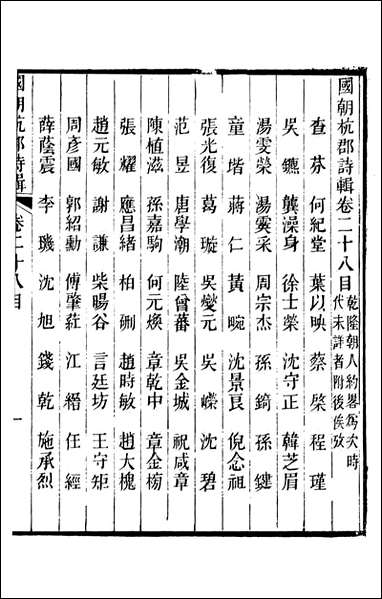 國朝杭郡詩輯卷二十八目乾隆朝人約畧爲次時代未詳者附後俟攷
查芬 何紀堂 葉以映 蔡榮 程瑾
吳鑣 龔澡身 徐士榮 沈守正 韓芝眉
湯雯榮 湯霙采 周宗杰 孫錡 孫鍵
童堦 蔣仁 黃畹 沈景良 倪念祖
張光復 葛璇 吳燮元 吳嶸 沈碧
范昱 唐學潮 陸曾蕃 吳金城 祝咸章
陳植滋 孫嘉駒 何元煥 章乾中 章金㮄
張耀 應昌緒 柏 趙時敏 趙大槐
趙元敏 謝謙 柴暘谷 言廷坊 王守矩
周彥國 郭紹勳 傅肇莊 江縉 任經
薛蔭震 李璣 沈旭 錢乾 施承烈
國朝杭郡詩輯 卷二十八目 一